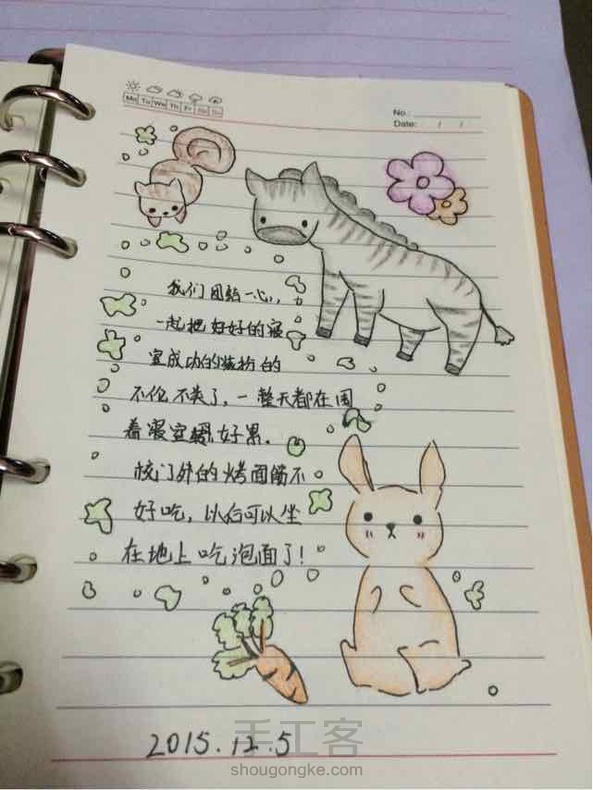 Mo Tu We Th Fr Sa Su
No.:
Date: / /
我们团结一心,
一起把好好的寝
室成功的装扮的
不伦不类了,一整天都在围
着寝室 好累.
校门外的烤面筋不
好吃,以后可以坐
在地上吃泡面了!
2015.12.5
手工客
shougongke.com